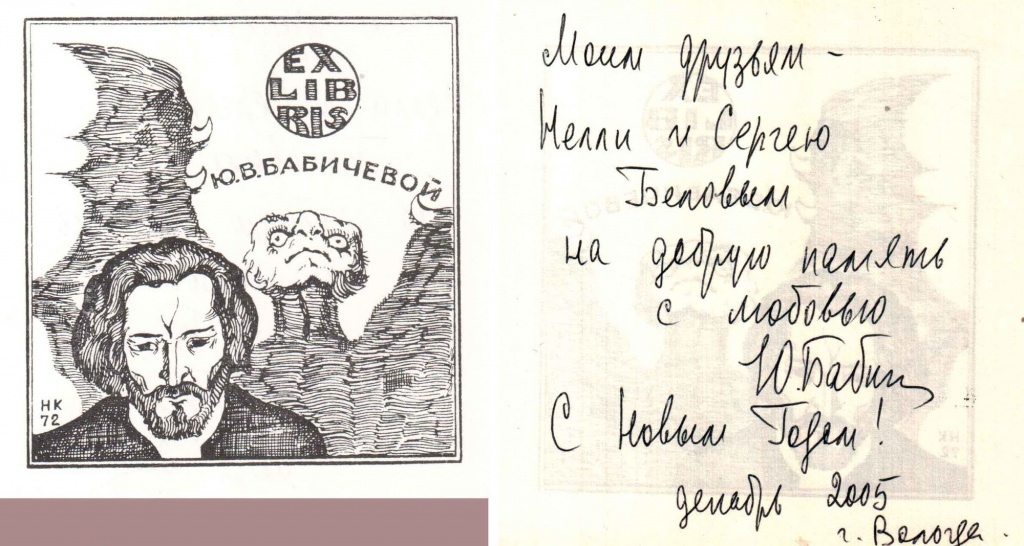 EX
LIB
RIS
Ю.В.БАБИЧЕВОЙ
НК
72
Моим друзьям –
Нелли и Сергею
Беловым
на добрую память
с любовью
Ю.Бабич
С Новым Годом!
декабрь 2005
г. Вологда.